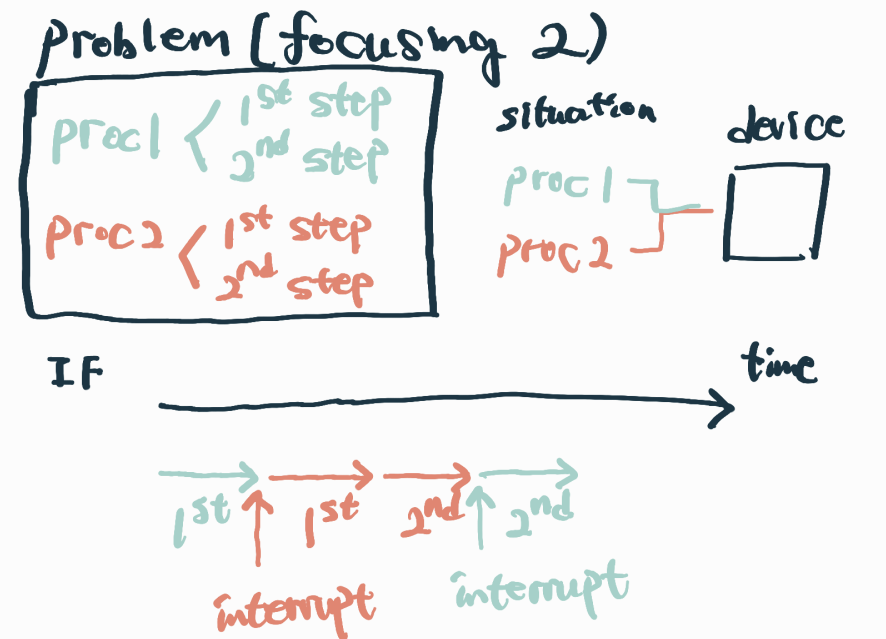 problem (focusing 2)
proc1 < 1st step
2nd step
proc2 < 1st step
2nd step
situation
device
proc1
proc2
IF
time
1st 1st 2nd 2nd
interrupt interrupt